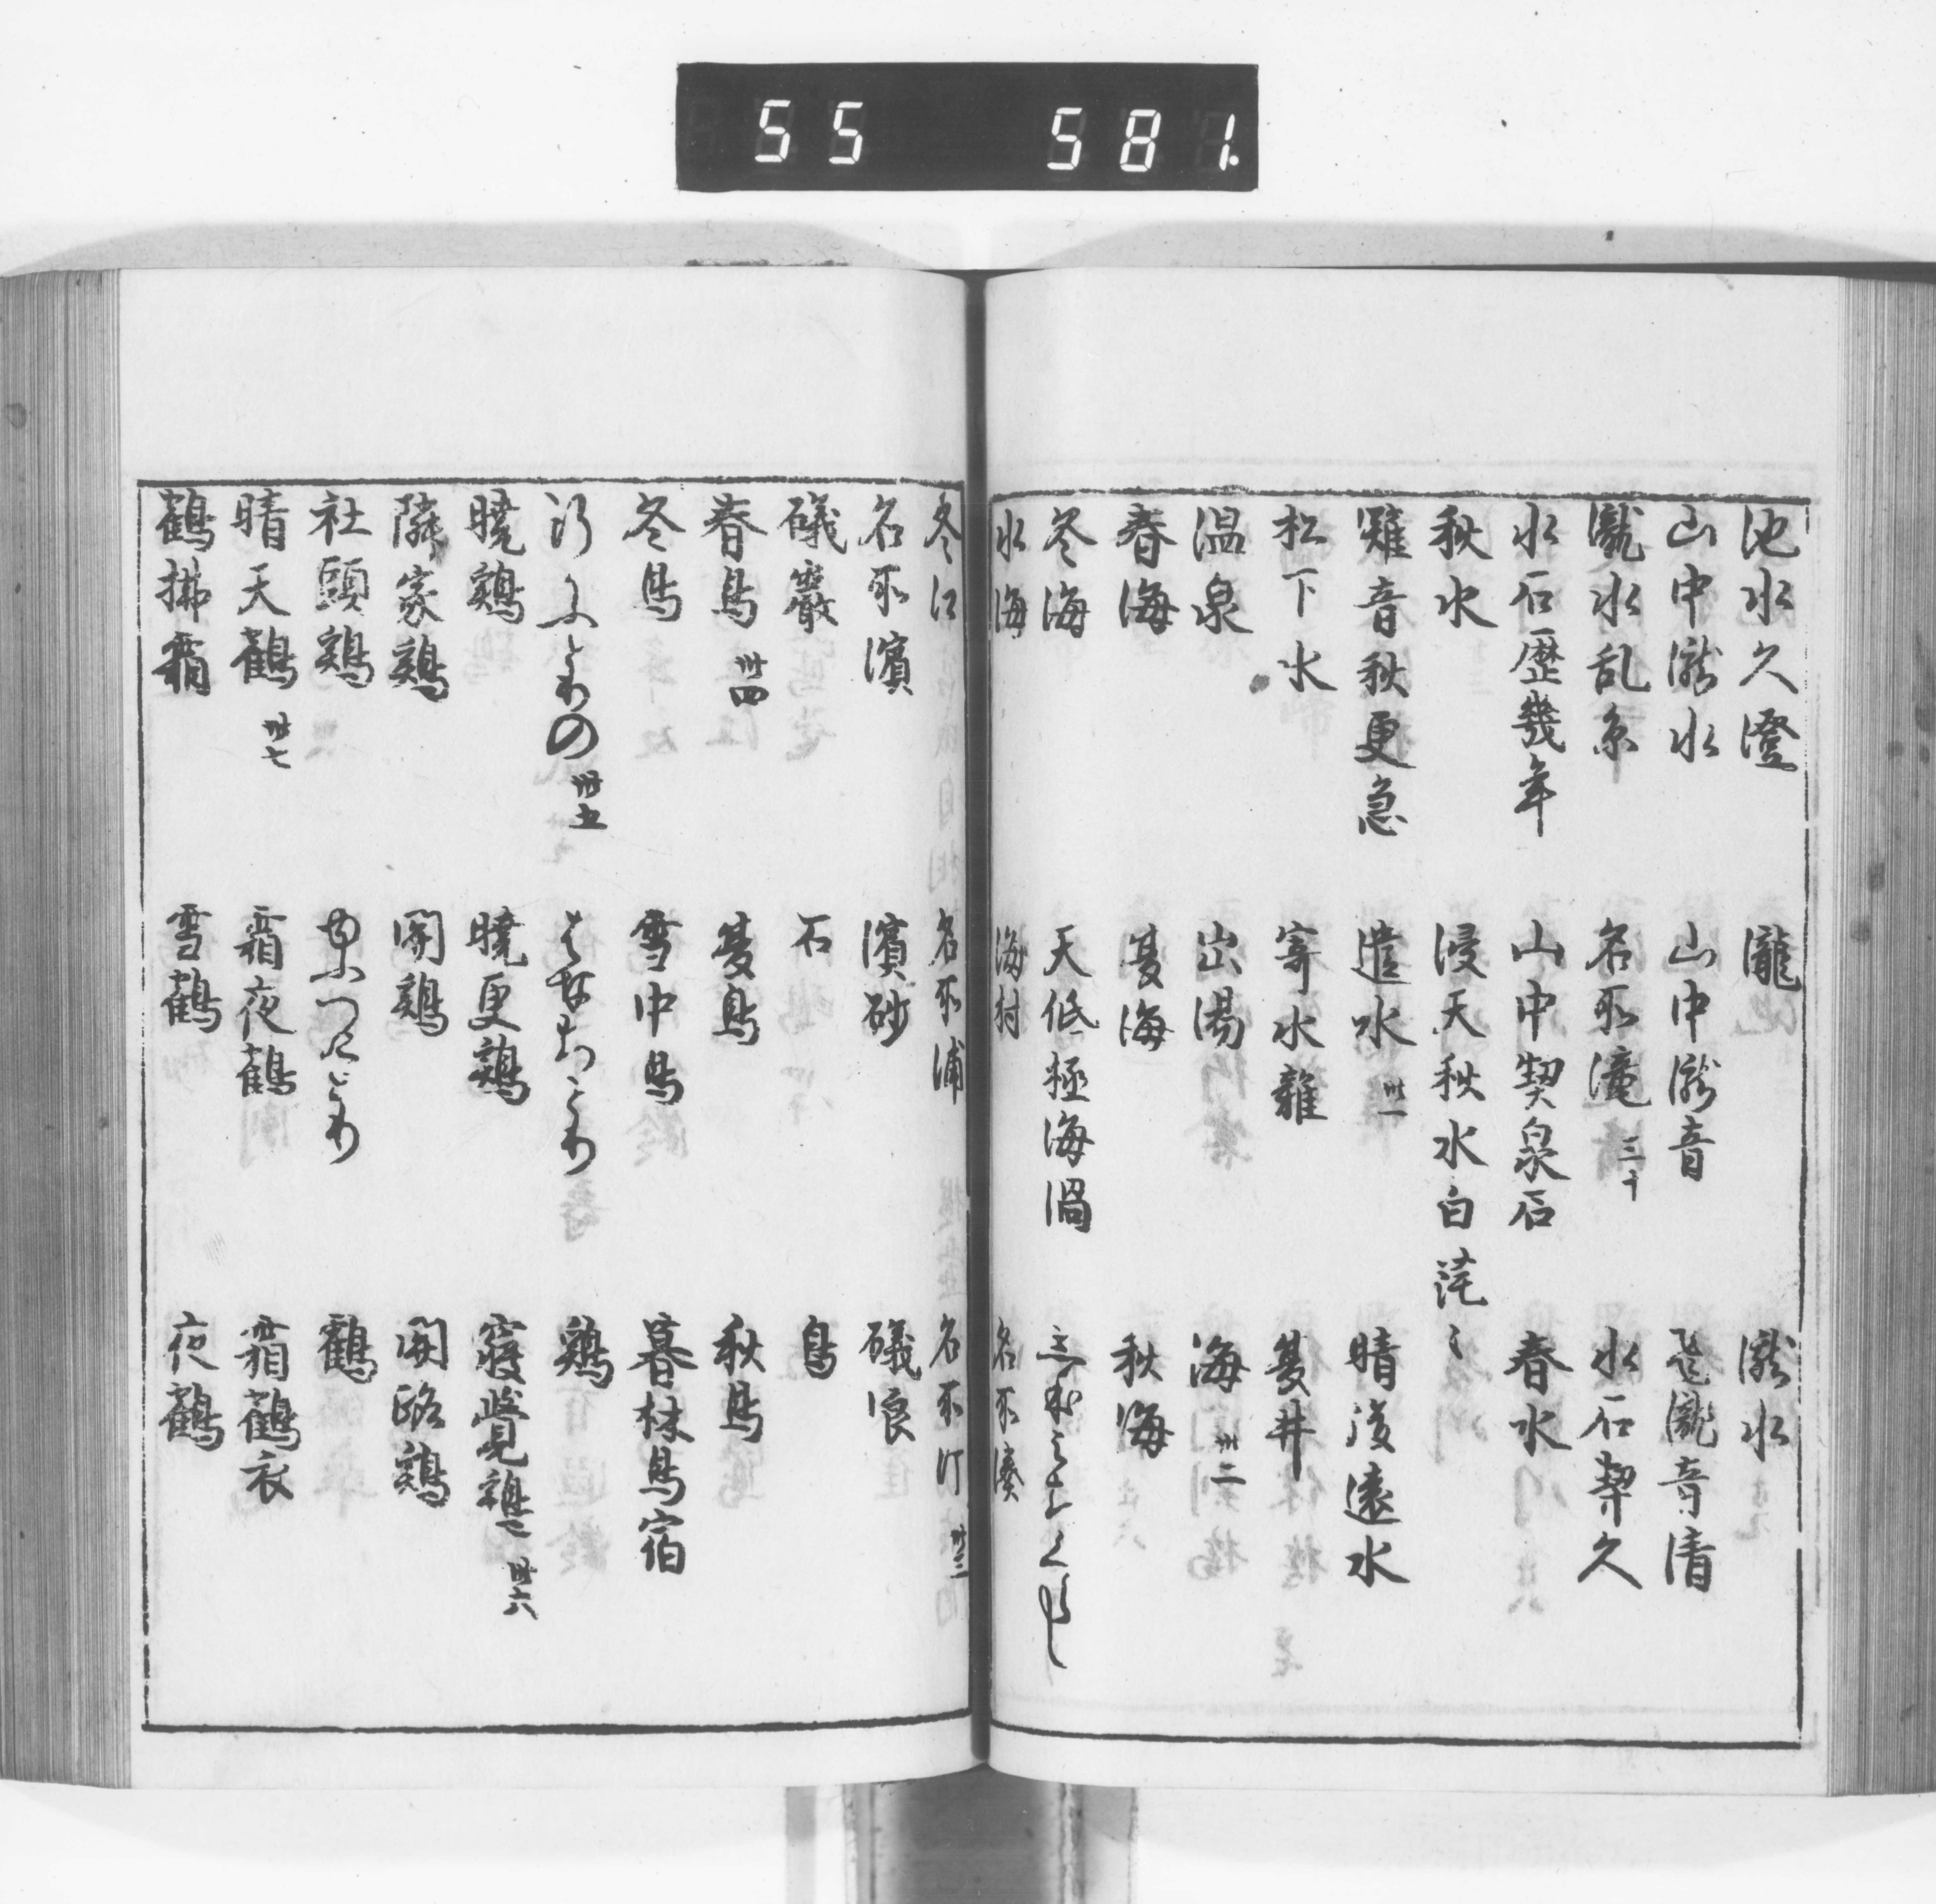 55 581.
池水久澄 瀧 瀧水
山中瀧水 山中瀧音 瀧音清
瀧水乱糸 名所滝 三十 水石契久
水石歴幾年 山中契泉石 春水
秋水 浸天秋水白茫〻
難音秋更急 遣水 卅一 晴後遠水
松下水 寄水雑 夏井
温泉 出湯 海 卅二
春海 夏海 秋海
冬海 天低極海湄
水海 海村 名所湊
冬江 名所浦 名所汀 卅三
名所濱 濱砂 礒浪
礒巌 石 鳥
春鳥 卅四 夏鳥 秋鳥
冬鳥 雪中鳥 暮林鳥宿
とりの 卅五 はなちとり 鶏
暁鶏 暁更鶏 寝覚鶏 卅六
隣家鶏 聞鶏 関路鶏
社頭鶏 鶴
晴天鶴 卅七 霜夜鶴 霜鶴衣
鶴拂霜 雪鶴 夜鶴